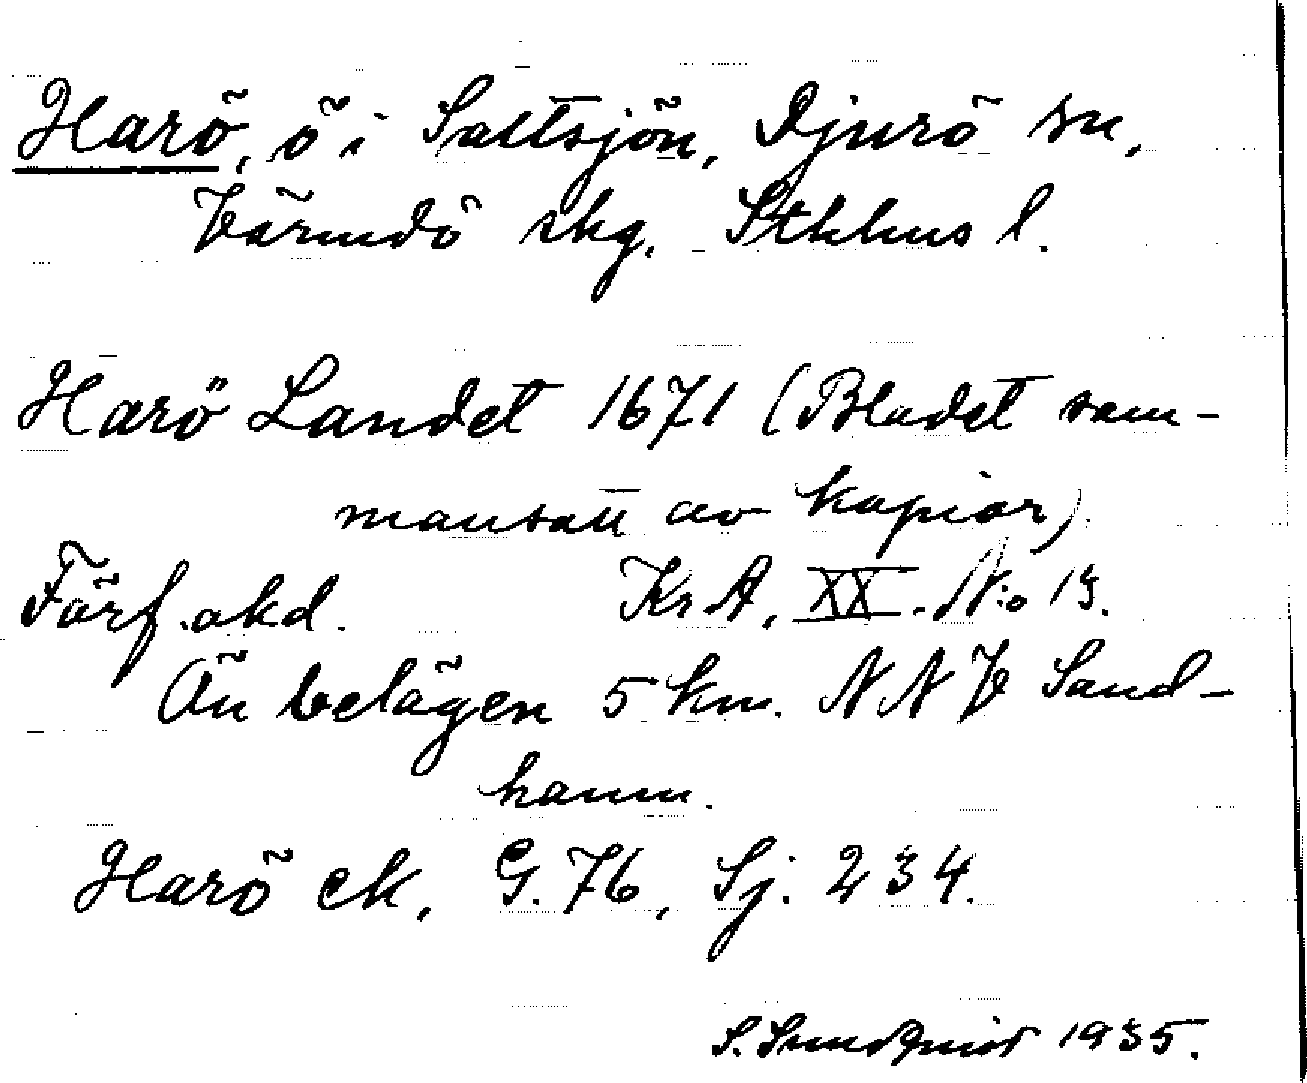 Harö, ö i Saltsjön, Djurö sn,
Värmdö skg. Sthlms l.
Harö Landet 1671 (Bladet sam-
mansatt av kopior)
Förf. okd. KrA, XX. N:o 13.
Ön belägen 5 km. NNV Sand-
hamn.
Harö ek, G. 76, Sj. 234.
S. Sundquist 1935.